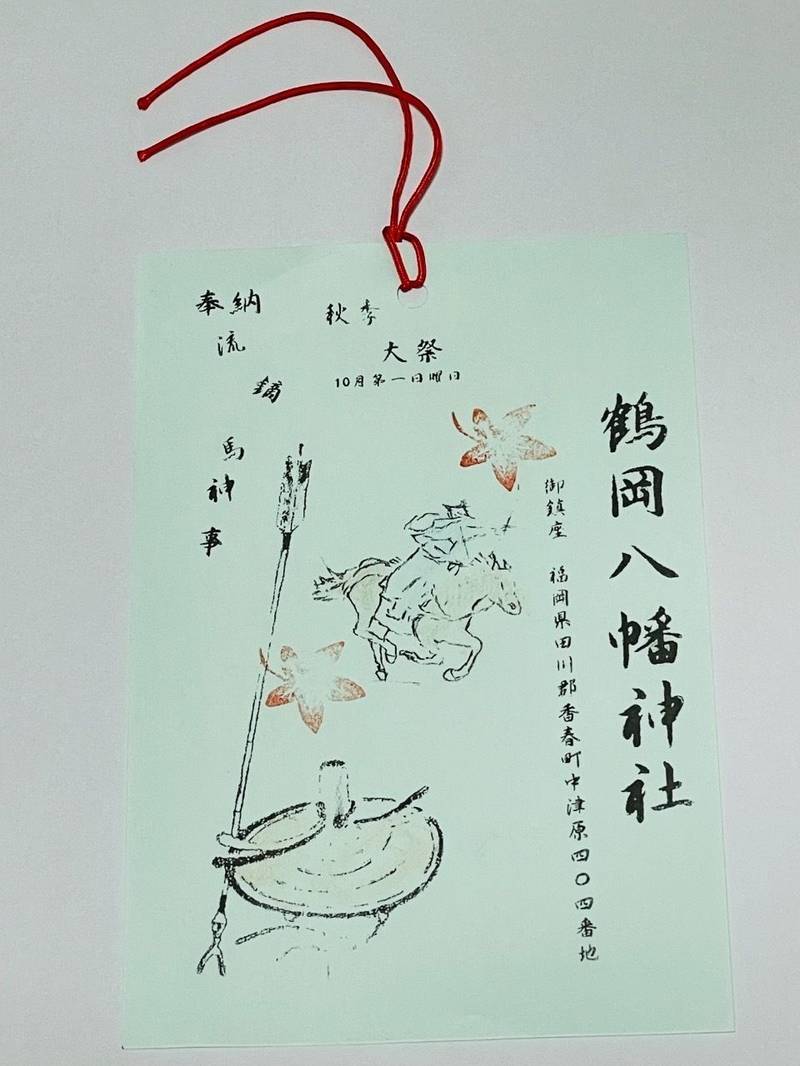 鶴岡八幡神社
御鎮座　福岡県田川郡香春町中津原四〇四番地
秋季
大祭
10月第一日曜日
奉納
流
鏑
馬
神
事